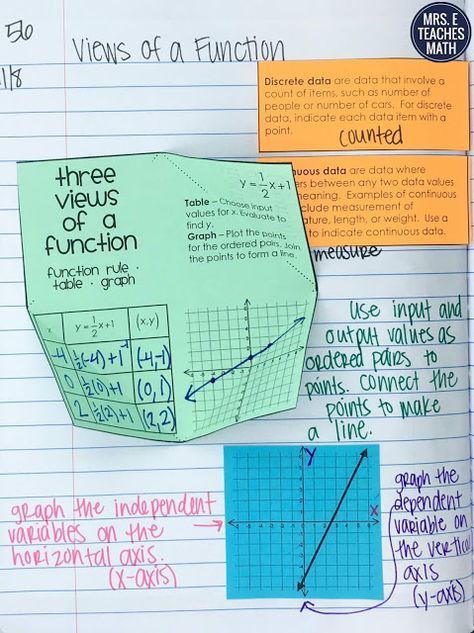 56
1/8
Views of a Function
MRS. E
TEACHES
MATH
Discrete data are data that involve a
count of items, such as number of
people or number of cars. For discrete
data, indicate each data item with a
point.
counted
uous data are data where
ers between any two data values
meaning. Examples of continuous
clude measurement of
ature, length, or weight. Use a
to indicate continuous data.
measure
three
views
of a
function
function rule ·
table · graph
y = 1/2 x+1
Table – Choose input
values for x. Evaluate to
find y.
Graph – Plot the points
for the ordered pairs. Join
the points to form a line.
x y = 1/2 x+1 (x,y)
-4 1/2(-4)+1 -1 (-4,-1)
0 1/2(0)+1 (0,1)
2 1/2(2)+1 (2,2)
Use input and
output values as
ordered pairs to
points. Connect the
points to make
a line.
graph the independent
variables on the
horizontal axis.
(x-axis)
y
x
graph the
dependent
variable on
the vertical
axis
(y-axis)